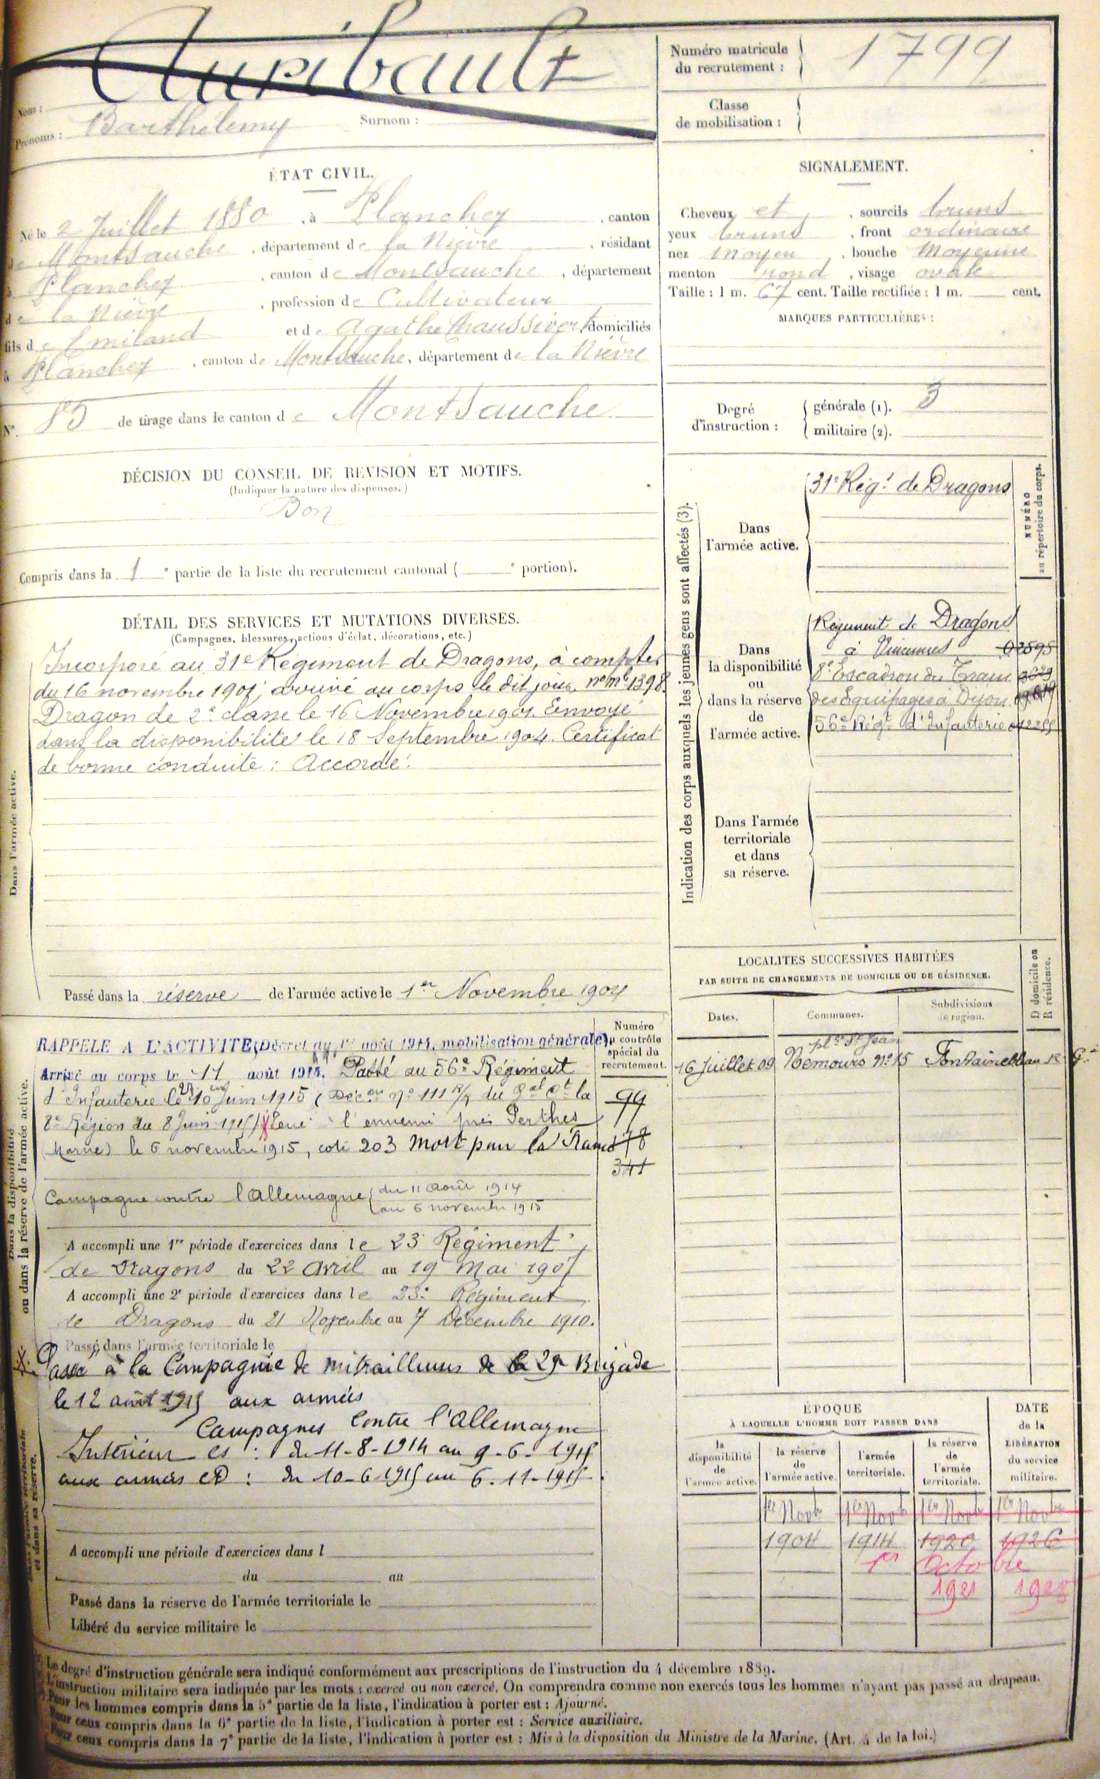 Nom : Auribault
Prénoms : Barthélemy Surnom :
Numéro matricule
du recrutement : 1799
Classe
de mobilisation :
ÉTAT CIVIL.
Né le 2 Juillet 1880, à Planchez, canton
de Montsauche, département de la Nièvre, résidant
à Planchez, canton de Montsauche, département
de la Nièvre, profession de Cultivateur
fils de Emiland et de Agathe domiciliés
à Planchez, canton de Montsauche, département de la Nièvre
N° 85 de tirage dans le canton de Montsauche
SIGNALEMENT.
Cheveux et, sourcils bruns
yeux bruns, front ordinaire
nez moyen, bouche moyenne
menton rond, visage ovale
Taille : 1 m. 67 cent. Taille rectifiée : 1 m. cent.
MARQUES PARTICULIÈRES :
Degré
d'instruction :
générale (1). 3
militaire (2).
DÉCISION DU CONSEIL DE REVISION ET MOTIFS.
(Indiquer la nature des dispenses.)
Bon
Compris dans la 1e partie de la liste du recrutement cantonal ( e portion).
DÉTAIL DES SERVICES ET MUTATIONS DIVERSES.
(Campagnes, blessures, actions d'éclat, décorations, etc.)
Dans l'armée active.
Incorporé au 31e Régiment de Dragons, à compter
du 16 novembre 1901, arrivé au corps le dit jour, no mle 1398.
Dragon de 2e classe le 16 Novembre 1901. Envoyé
dans la disponibilité le 18 Septembre 1904. Certificat
de bonne conduite : Accordé.
Passé dans la réserve de l'armée active le 1er Novembre 1904
Indication des corps auxquels les jeunes gens sont affectés (3).
NUMÉRO
au répertoire du corps.
Dans
l'armée active.
31e Régt de Dragons
Dans
la disponibilité
ou
dans la réserve
de
l'armée active.
Régiment de Dragons
à Vincennes 02595
8e Escadron du Train
des Equipages à Dijon
56e Régt d'Infanterie
Dans l'armée
territoriale
et dans
sa réserve.
LOCALITÉS SUCCESSIVES HABITÉES
PAR SUITE DE CHANGEMENTS DE DOMICILE OU DE RÉSIDENCE.
Dates.
Communes.
Subdivisions
de région.
D domicile ou
R résidence.
ple St Jean
16 Juillet 09 Nemours No 15 Fontainebleau
Dans la disponibilité
ou dans la réserve de l'armée active.
Numéro
au contrôle
spécial du
recrutement.
RAPPELÉ A L'ACTIVITÉ (Décret du 1er août 1914, mobilisation générale)
Arrivé au corps le 11 août 1914. Passé au 56e Régiment
d'Infanterie le 10 Juin 1915 (Déc on No 111 du Gal Ct la 99
8e Région du 8 Juin 1915) Tué à l'ennemi près Perthes
(Marne) le 6 novembre 1915, coté 203 Mort pour la France
341
Campagne contre l'Allemagne (du 11 août 1914
au 6 novembre 1915
A accompli une 1re période d'exercices dans le 23e Régiment
de Dragons du 22 Avril au 19 Mai 1907
A accompli une 2e période d'exercices dans le 23e Régiment
de Dragons du 21 Novembre au 7 Décembre 1910.
Passé dans l'armée territoriale le
Passé à la Compagnie de mitrailleuses de la 29e Brigade
le 12 août 1915 aux armées
Campagnes Contre l'Allemagne
Intérieur CS : du 11-8-1914 au 9-6-1915
aux armées CD : du 10-6-1915 au 6-11-1915.
et dans sa réserve.
A accompli une période d'exercices dans l
du au
Passé dans la réserve de l'armée territoriale le
Libéré du service militaire le
ÉPOQUE
À LAQUELLE L'HOMME DOIT PASSER DANS
la
disponibilité
de
l'armée active.
la réserve
de
l'armée active.
l'armée
territoriale.
la réserve
de
l'armée
territoriale.
DATE
de la
LIBÉRATION
du service
militaire.
1er Novbre 1er Novb 1er Novb 1er Novbre
1904 1914 1920 1926
1er Octobre
1921 1928
Le degré d'instruction générale sera indiqué conformément aux prescriptions de l'instruction du 4 décembre 1889.
L'instruction militaire sera indiquée par les mots : exercé ou non exercé. On comprendra comme non exercés tous les hommes n'ayant pas passé au drapeau.
Pour les hommes compris dans la 5e partie de la liste, l'indication à porter est : Ajourné.
Pour ceux compris dans la 6e partie de la liste, l'indication à porter est : Service auxiliaire.
Pour ceux compris dans la 7e partie de la liste, l'indication à porter est : Mis à la disposition du Ministre de la Marine. (Art. 4 de la loi.)